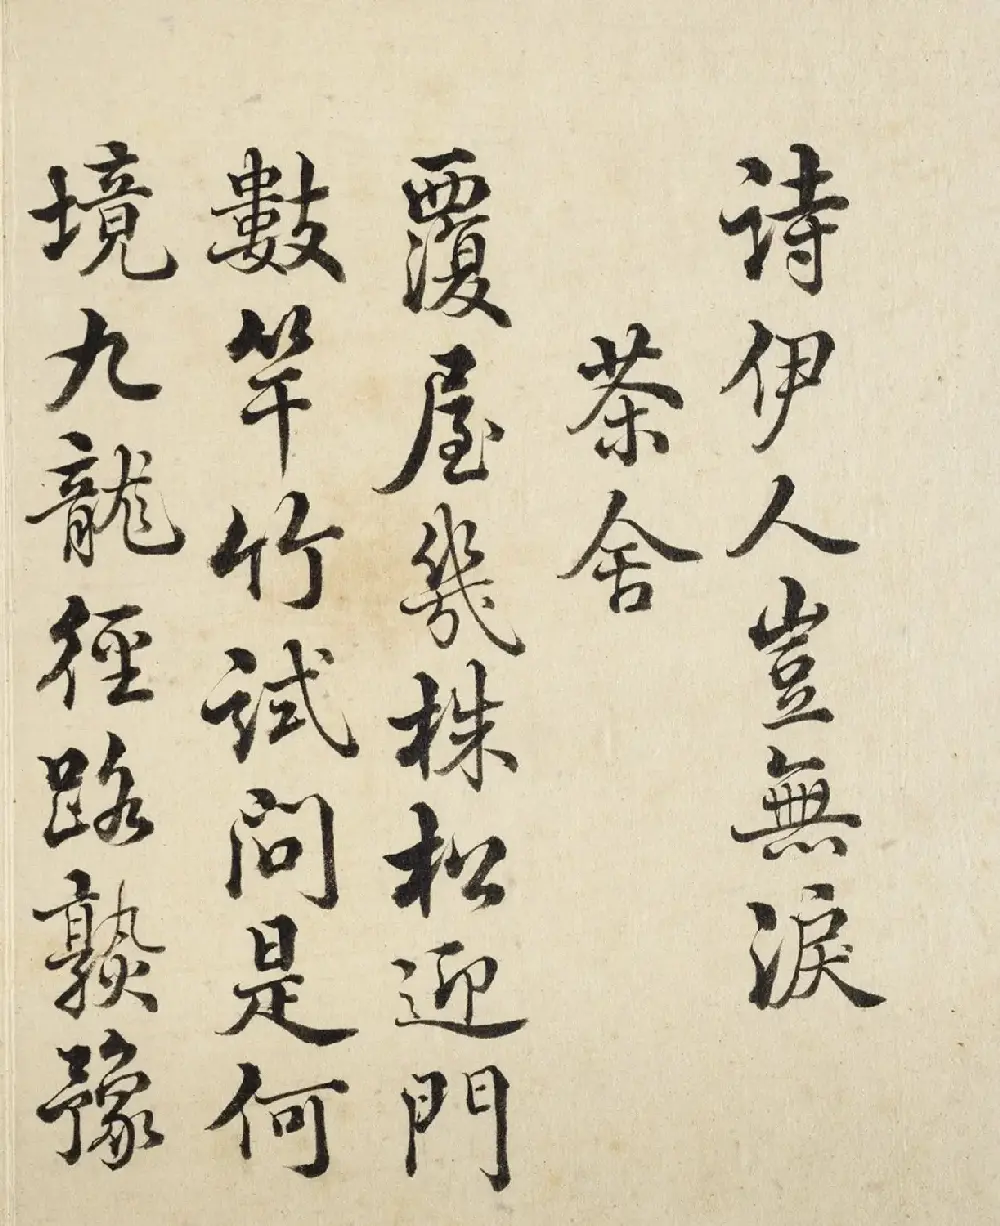 詩伊人豈無淚
茶舍
覆屋幾株松迎門
數竿竹試問是何
境九龍徑路熟豫